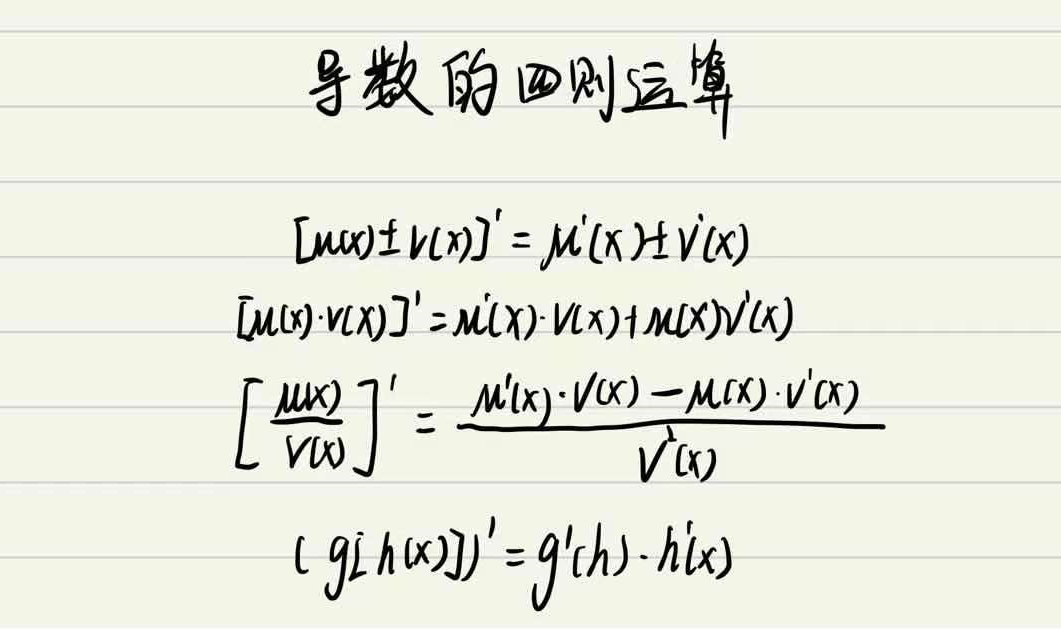 导数的四则运算
[μ(x)±v(x)]'=μ'(x)±v'(x)
[μ(x)·v(x)]'=μ'(x)·v(x)+μ(x)v'(x)
[μ(x)/v(x)]'=(μ'(x)·v(x)-μ(x)·v'(x))/v²(x)
(g[h(x)])'=g'(h)·h'(x)